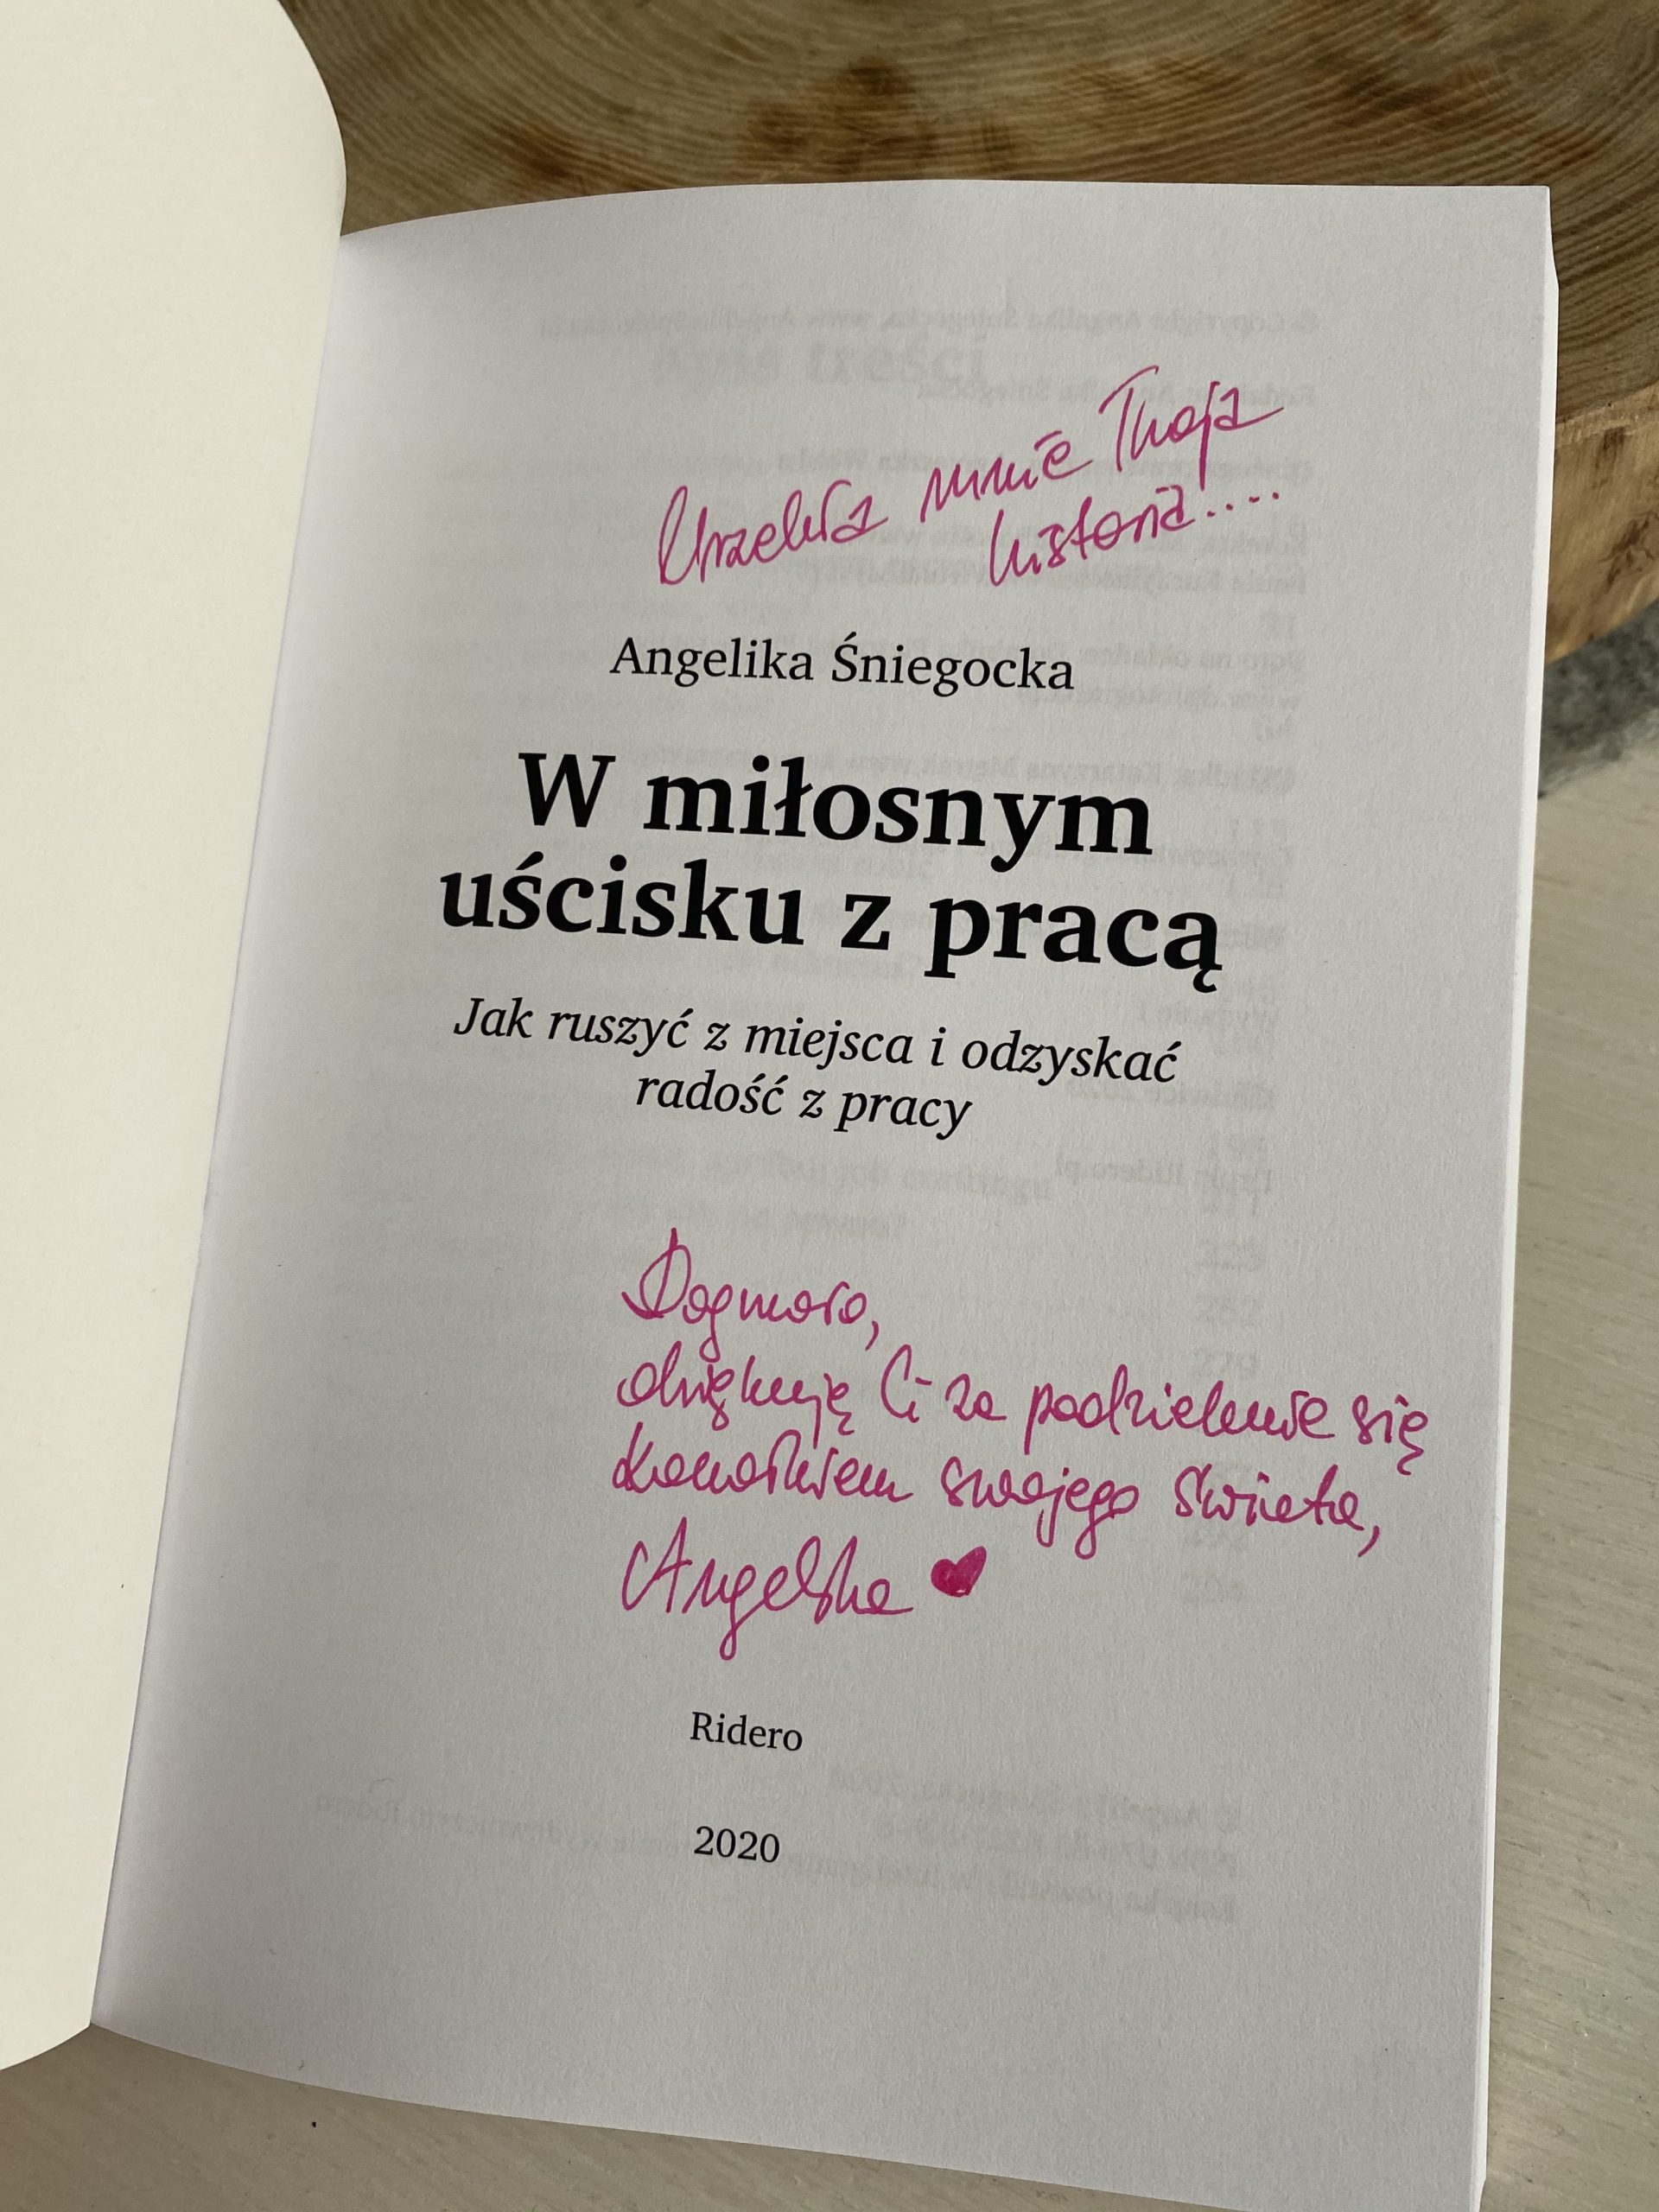 Urzekła mnie Twoja
historia....
Angelika Śniegocka
W miłosnym
uścisku z pracą
Jak ruszyć z miejsca i odzyskać
radość z pracy
Dagmaro,
dziękuję Ci za podzielenie się
kawałkiem swojego świata,
Angelika
Ridero
2020